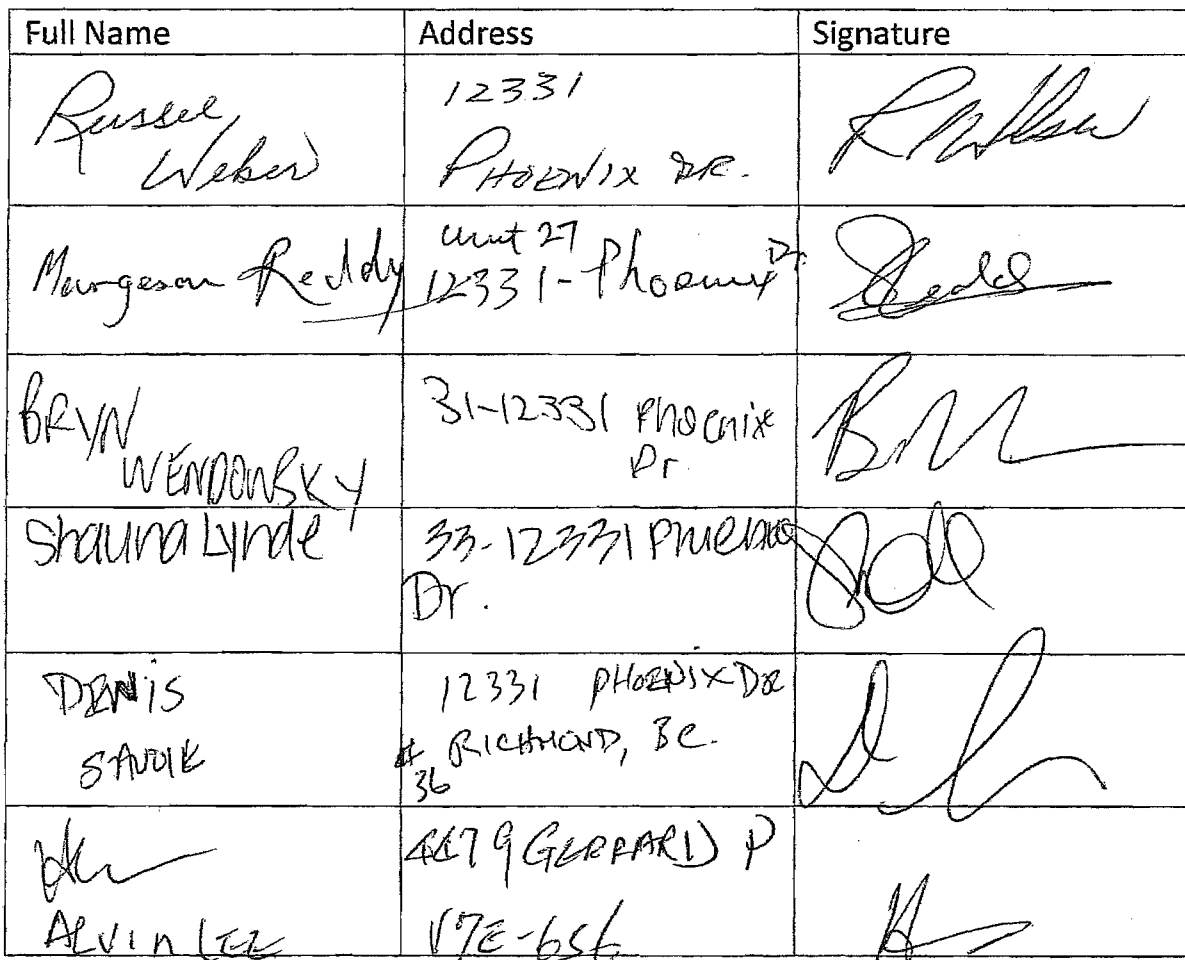 Full Name Address Signature
Russel
Weber
12331
PHOENIX DR.
Murgesan Reddy
Unit 27
12331-Phoenix Dr.
BRYN
WENDOWSKY
31-12331 Phoenix
Dr.
Shauna Lynde
33-12331
Dr.
DENIS
SAVOIE
12331 PHOENIX DR
# 36 RICHMOND, BC.
ALVIN LEE
GERRARD P
V7E-6S6